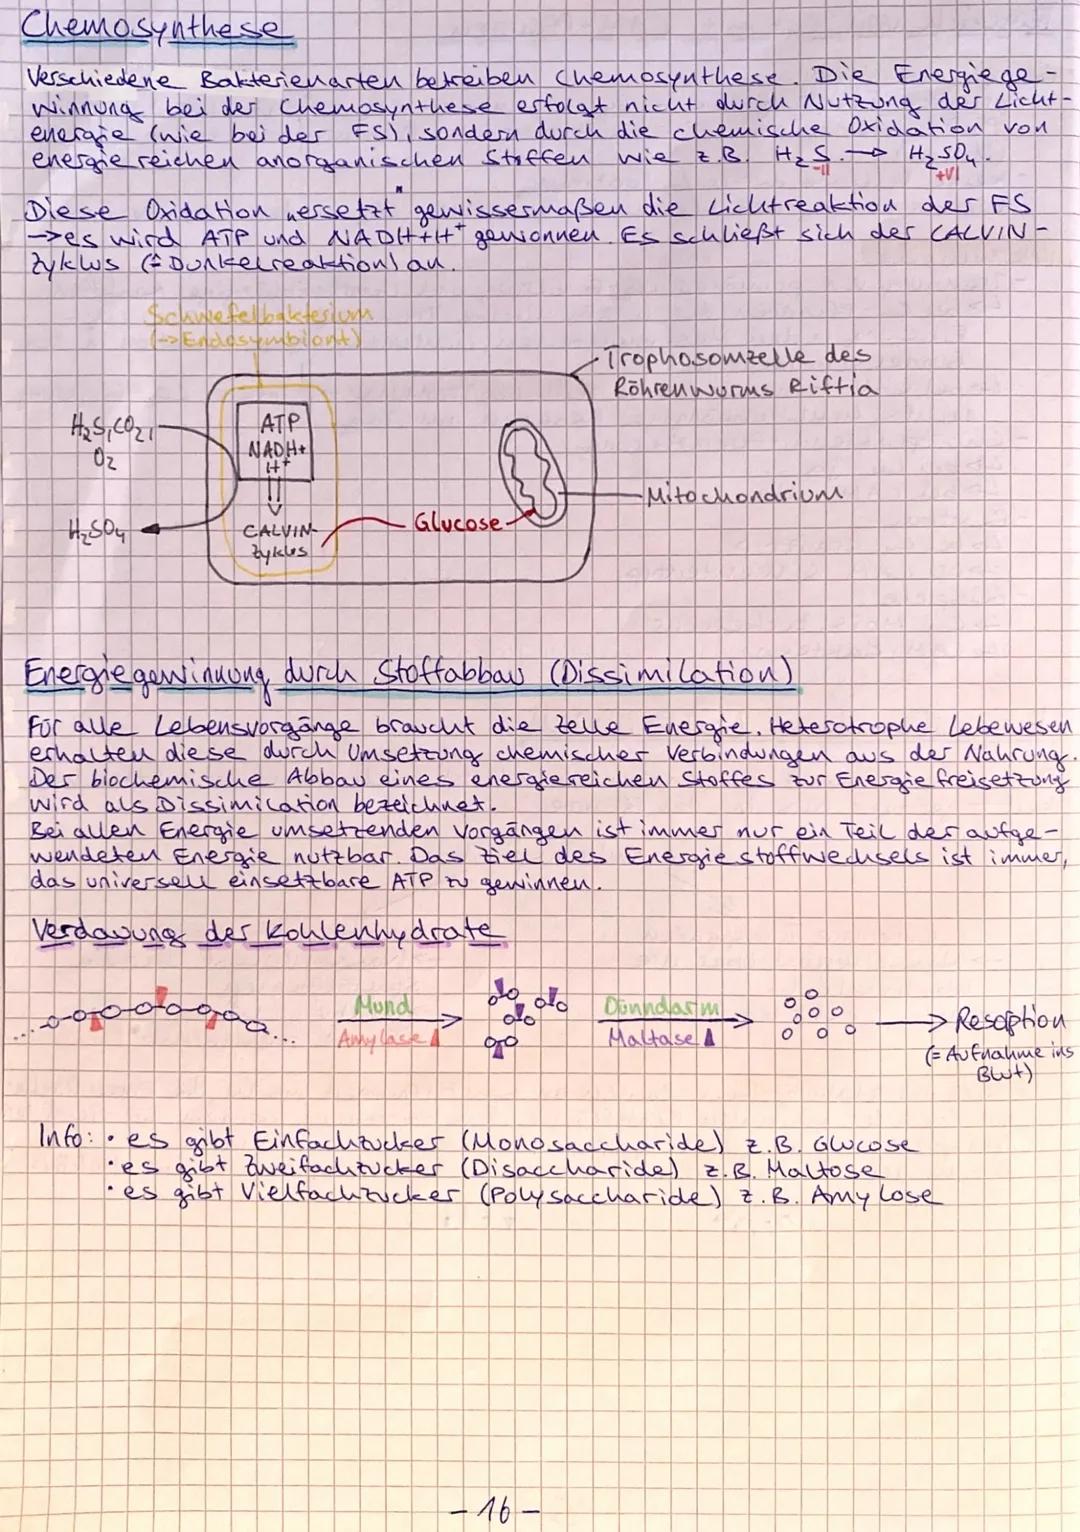 Chemosynthese
Verschiedene Bakterienarten betreiben Chemosynthese. Die Energiege-
winnung bei der Chemosynthese erfolgt nicht durch Nutzung der Licht-
energie (wie bei der FS), sondern durch die chemische Oxidation von
energiereichen anorganischen Stoffen wie z.B. H₂S → H₂SO₄.
-II +VI
Diese Oxidation "ersetzt" gewissermaßen die Lichtreaktion der FS
→es wird ATP und NADH+H⁺ gewonnen. Es schließt sich der CALVIN-
Zyklus (≙ Dunkelreaktion) an.
Schwefelbakterium
(→Endosymbiont)
Trophosomzelle des
Röhrenwurms Riftia
H₂S, CO₂,
O₂
ATP
NADH+
H⁺
Mitochondrium
H₂SO₄
CALVIN-
Zyklus
Glucose
Energiegewinnung durch Stoffabbau (Dissimilation)
Für alle Lebensvorgänge braucht die Zelle Energie. Heterotrophe Lebewesen
erhalten diese durch Umsetzung chemischer Verbindungen aus der Nahrung.
Der biochemische Abbau eines energiereichen Stoffes zur Energiefreisetzung
wird als Dissimilation bezeichnet.
Bei allen Energie umsetzenden Vorgängen ist immer nur ein Teil der aufge-
wendeten Energie nutzbar. Das Ziel des Energiestoffwechsels ist immer,
das universell einsetzbare ATP zu gewinnen.
Verdauung der Kohlenhydrate
Mund
Amylase
Dünndarm
Maltase
Resorption
(= Aufnahme ins
Blut)
Info: • es gibt Einfachzucker (Monosaccharide) z.B. Glucose
• es gibt Zweifachzucker (Disaccharide) z.B. Maltose
• es gibt Vielfachzucker (Polysaccharide) z.B. Amylose
- 16 -